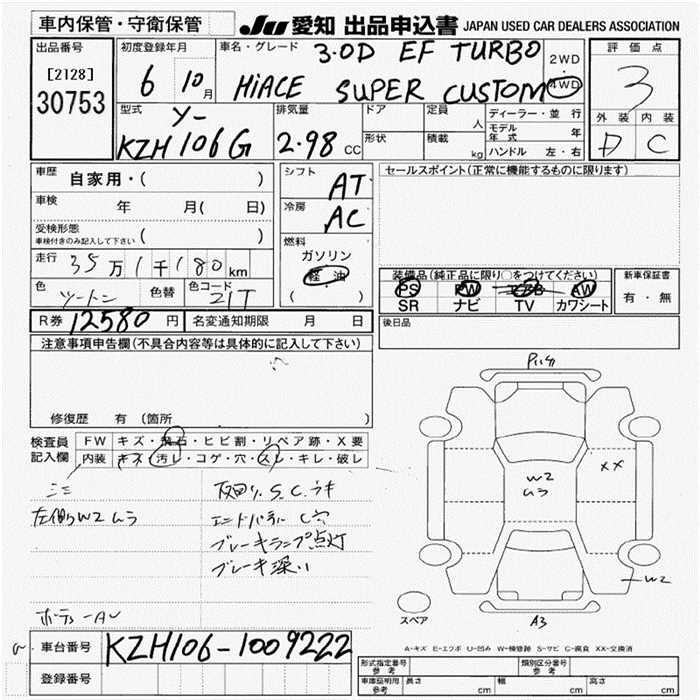 車内保管・守衛保管
JU 愛知 出品申込書 JAPAN USED CAR DEALERS ASSOCIATION
出品番号
[2128]
30753
初度登録年月
6 10月
車名・グレード
3.0D EF TURBO
HiACE SUPER CUSTOM
2WD
4WD
評価点
3
外装 内装
D C
型式
Y-
KZH106G
排気量
2.98 CC
ドア
形状
定員 人
積載 kg
ディーラー・並行
モデル年式 年
ハンドル 左・右
車歴 自家用・( )
車検 年 月( 日)
受検形態
車検付きのみ記入して下さい ( )
走行 35万1千180km
色 ツートン 色替 色コード 21T
シフト AT
冷房 AC
燃料
ガソリン
軽油
( )
セールスポイント(正常に機能するものに限ります)
装備品(純正品に限り○をつけてください)
PS PW エアB AW
SR ナビ TV カワシート
新車保証書
有・無
R券 12580円 名変通知期限 月 日
後日品
注意事項申告欄(不具合内容等は具体的に記入して下さい)
修復歴 有 (箇所 )
検査員
記入欄
FW キズ・飛石・ヒビ割・リペア跡・X要
内装 キズ・汚レ・コゲ・穴・スレ・キレ・破レ
左側W2ムラ
エンドパネル C穴
ブレーキランプ点灯
ブレーキ深い
W2
ムラ
XX
W2
A3
スペア
A-キズ E-エクボ U-凹み W-補修跡 S-サビ C-腐食 XX-交換済
車台番号 KZH106-1009222
登録番号
形式指定番号 参考
類別区分番号 参考
車庫証明用 参考 長さ cm 幅 cm 高さ cm